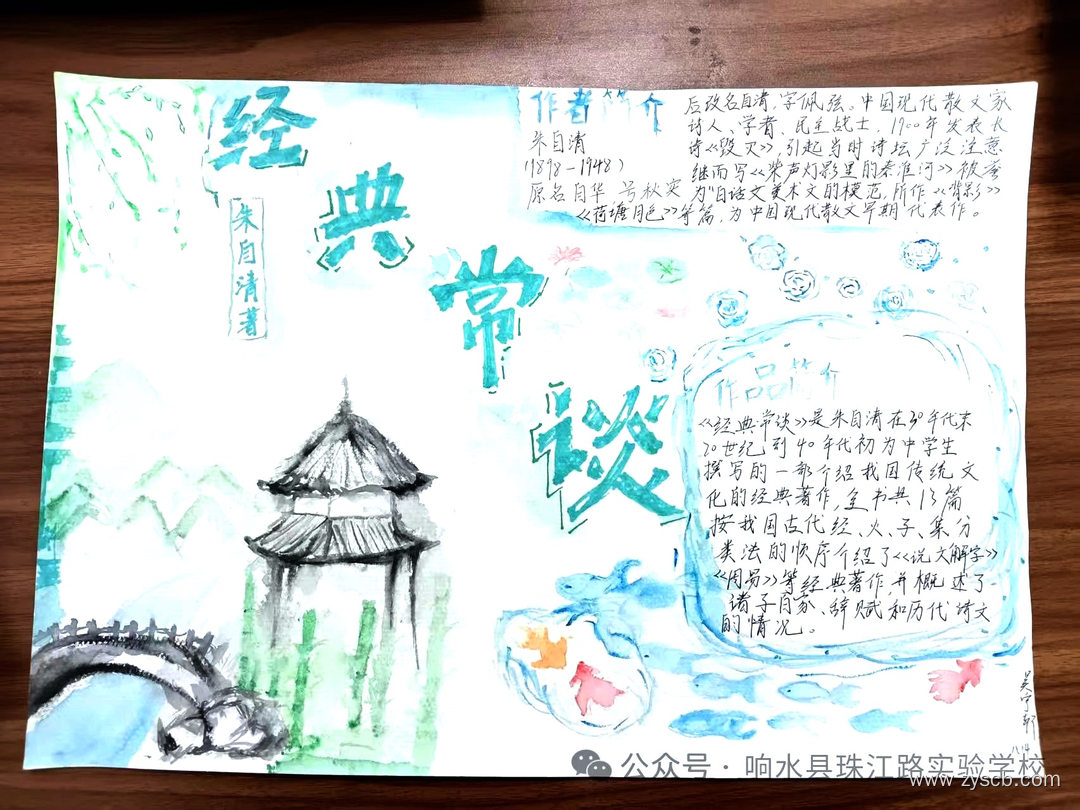 经典常谈
朱自清著
作者简介
朱自清
(1898-1948)
原名自华 号秋实
后改名自清,字佩弦。中国现代散文家
诗人、学者、民主战士,1900年发表长
诗《毁灭》,引起当时诗坛广泛注意
继而写《桨声灯影里的秦淮河》被誉
为"白话文美术文的模范,所作《背影》
《荷塘月色》等篇,为中国现代散文早期代表作。
作品简介
《经典常谈》是朱自清在30年代末
20世纪到40年代初为中学生
撰写的一部介绍我国传统文
化的经典著作,全书共13篇
按我国古代经、火、子、集分
类法的顺序介绍了《说文解字》
《周易》等经典著作,并概述了
诸子百家、辞赋和历代诗文
的情况。
吴宁轩
公众号·响水县珠江路实验学校
www.zyscb.com